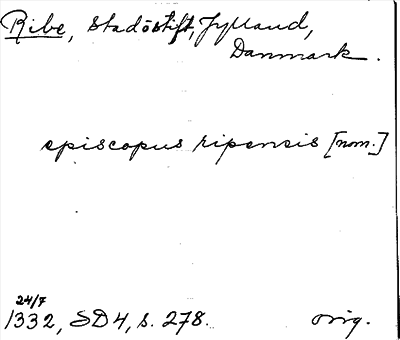 Ribe, stad o stift, Jylland,
Danmark.
episcopus ripensis [nom.]
24/7
1332, SD4, s. 278. orig.